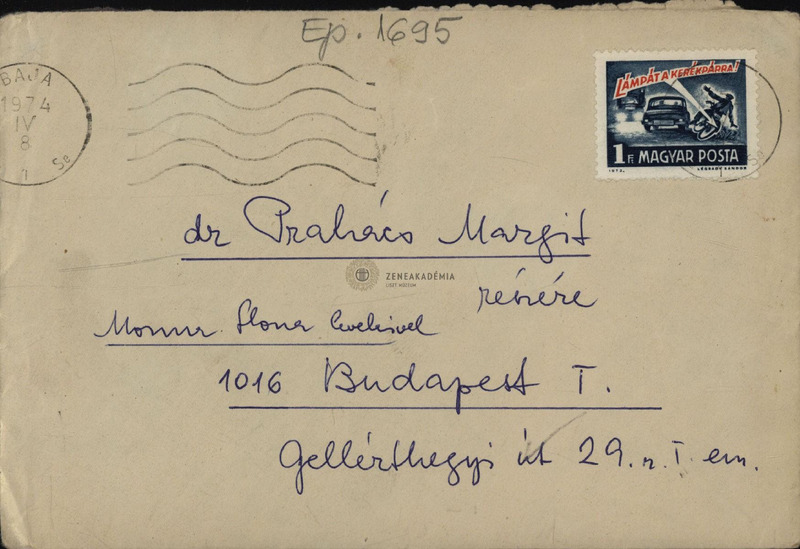 Ep. 1695
BAJA
1974
IV
8
LÁMPÁT A KERÉKPÁRRA!
1 Ft MAGYAR POSTA
1973. LÉGRÁDY SÁNDOR
dr Prahács Margit
ZENEAKADÉMIA
LISZT MÚZEUM
részére
Ilona levelével
1016 Budapest I.
Gellérthegyi út 29. I. em.